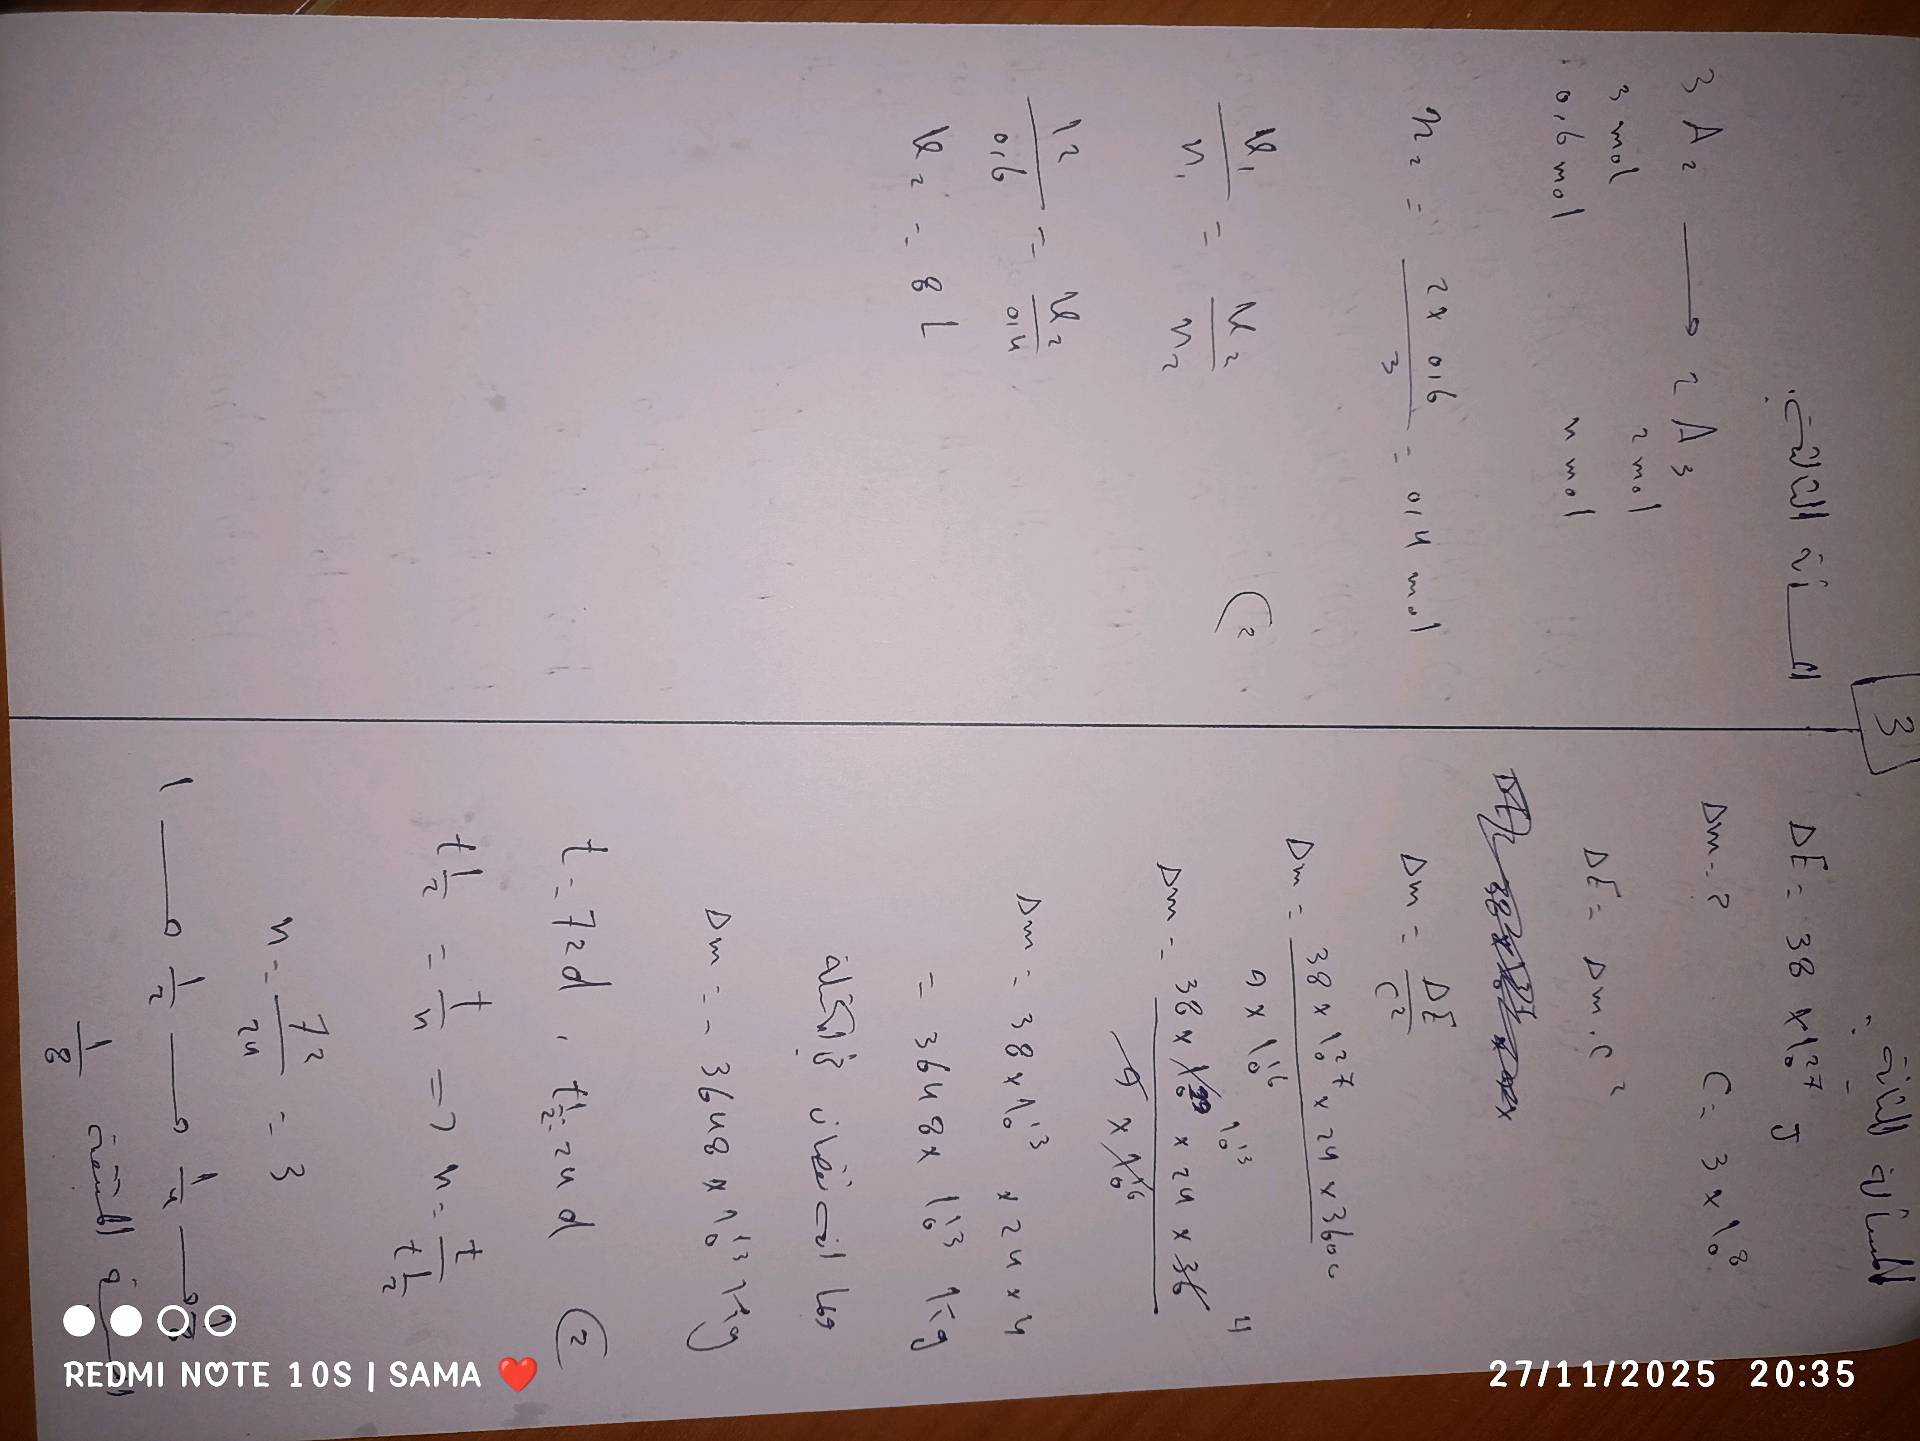 3
المسألة الثانية:
ΔE = 38 × 10²⁷ J
Δm = ? C = 3 × 10⁸
ΔE = Δm . C²
Δm = ΔE / C²
Δm = 38 × 10²⁷ × 24 × 3600 / 9 × 10¹⁶
Δm = 38 × 10²⁹ × 24 × 36 / 9 × 10¹⁶
10¹³
4
Δm = 38 × 10¹³ × 24 × 4
= 3648 × 10¹³ kg
وبما انه نقصان في الكتلة
Δm = - 3648 × 10¹³ kg
2)
t = 72 d , t½ = 24 d
t½ = t / n ⇒ n = t / t½
n = 72 / 24 = 3
1 → 1/2 → 1/4 → 1/8
النسبة 1/8
المسألة الثالثة:
3 A₂ → 2 A₃
3 mol 2 mol
0,6 mol n mol
n₂ = 2 × 0,6 / 3 = 0,4 mol
2)
V₁ / n₁ = V₂ / n₂
12 / 0,6 = V₂ / 0,4
V₂ = 8 L
REDMI NOTE 10S | SAMA ❤️
27/11/2025 20:35